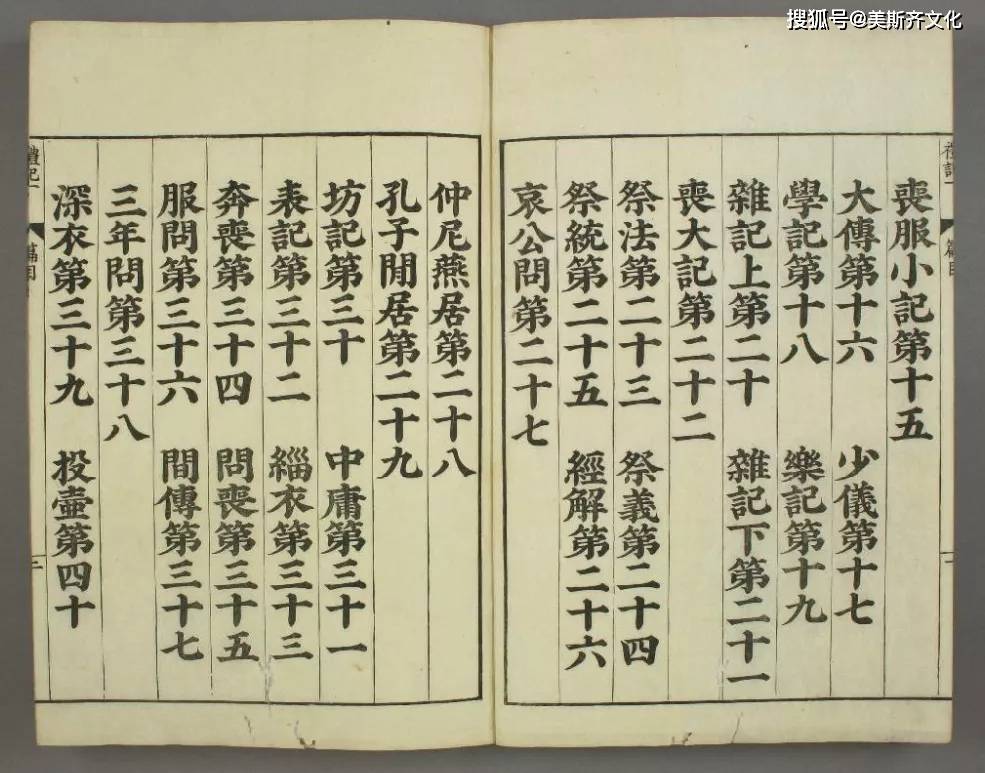 搜狐号@美斯齐文化
喪服小記第十五
大傳第十六 少儀第十七
學記第十八 樂記第十九
雜記上第二十 雜記下第二十一
喪大記第二十二
祭法第二十三 祭義第二十四
祭統第二十五 經解第二十六
哀公問第二十七
仲尼燕居第二十八
孔子閒居第二十九
坊記第三十 中庸第三十一
表記第三十二 緇衣第三十三
奔喪第三十四 問喪第三十五
服問第三十六 間傳第三十七
三年問第三十八
深衣第三十九 投壺第四十
禮記一
篇目
二